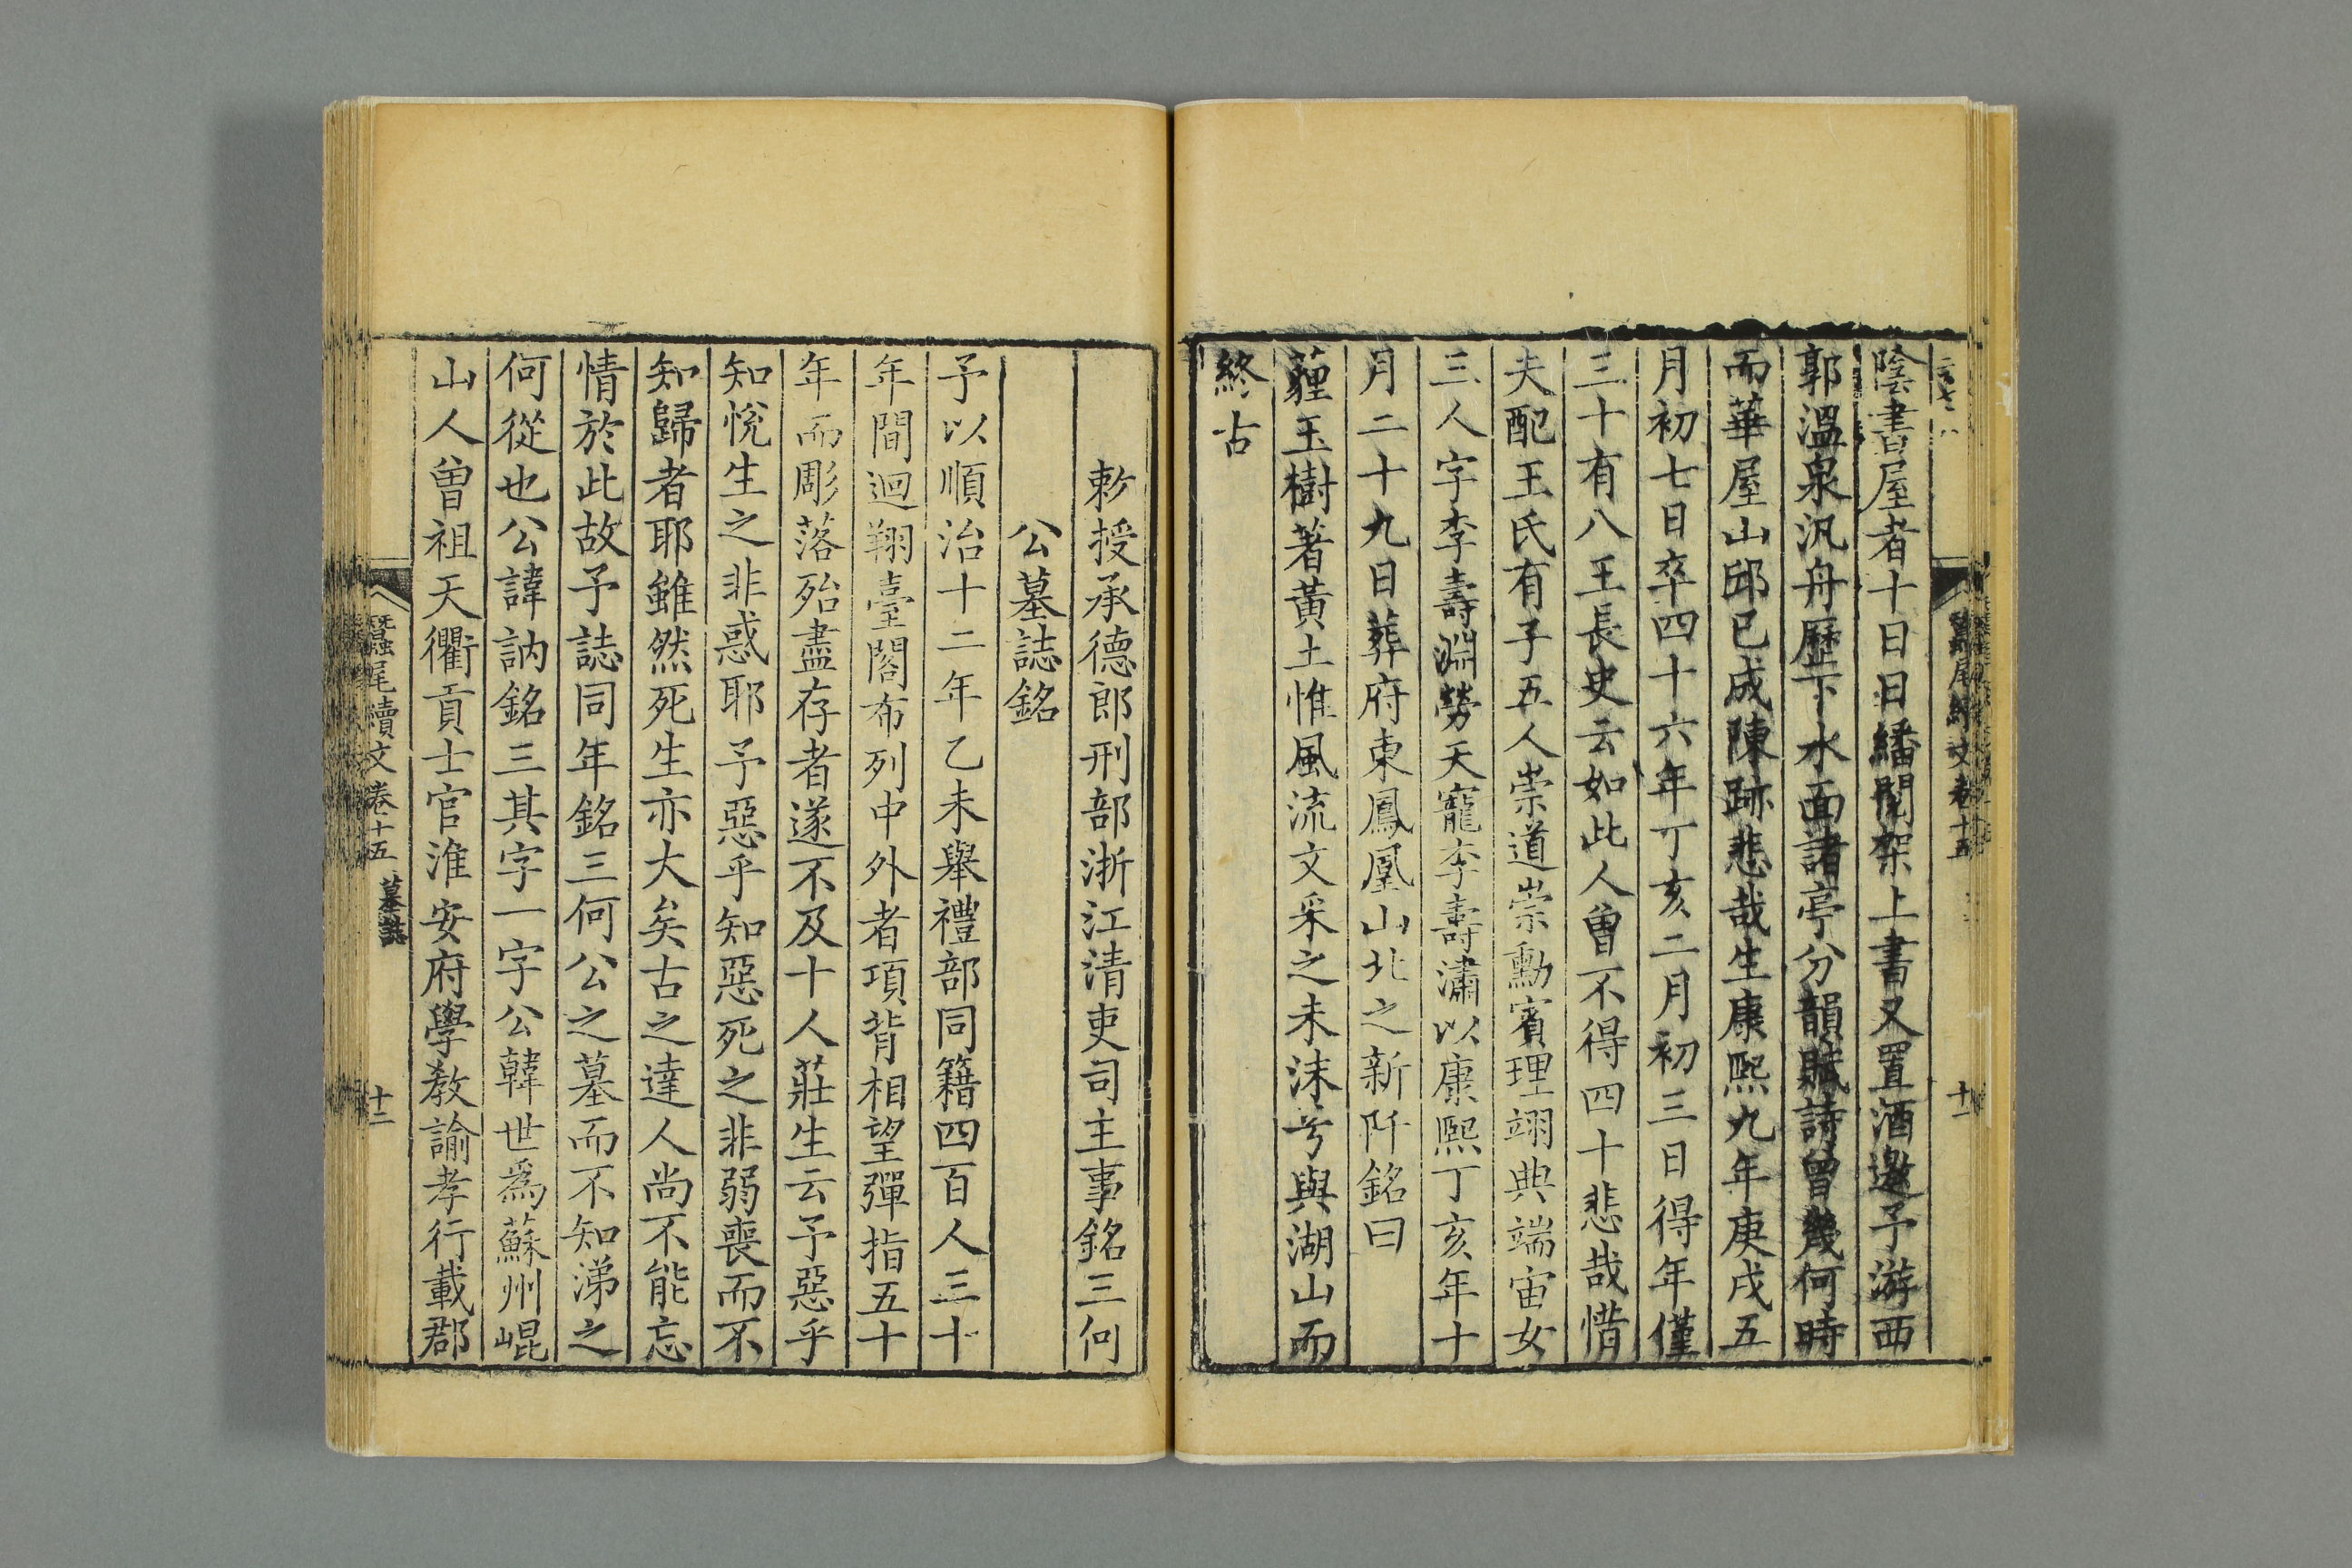 陰書屋者十日日繙閱架上書又置酒邀予游西
郭溫泉汎舟歷下水面諸亭分韻賦詩曾幾何時
而華屋山邱已成陳跡悲哉生康熙九年庚戌五
月初七日卒四十六年丁亥二月初三日得年僅
三十有八王長史云如此人曾不得四十悲哉惜
夫配王氏有子五人崇道崇勳賓理翊典端宙女
三人字李壽淵勞天寵李壽潚以康熙丁亥年十
月二十九日葬府東鳳凰山北之新阡銘曰
薶玉樹著黃土惟風流文采之未沫兮與湖山而
終古
十一
敕授承德郎刑部浙江清吏司主事銘三何
公墓誌銘
予以順治十二年乙未舉禮部同籍四百人三十
年間迴翔臺閣布列中外者項背相望彈指五十
年而彫落殆盡存者遂不及十人莊生云予惡乎
知悅生之非惑耶予惡乎知惡死之非弱喪而不
知歸者耶雖然死生亦大矣古之達人尚不能忘
情於此故予誌同年銘三何公之墓而不知涕之
何從也公諱訥銘三其字一字公韓世爲蘇州崐
山人曾祖天衢貢士官淮安府學教諭孝行載郡
蠶尾續文卷十五 墓誌 十二